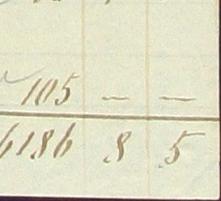 105 — —
6186 8 5